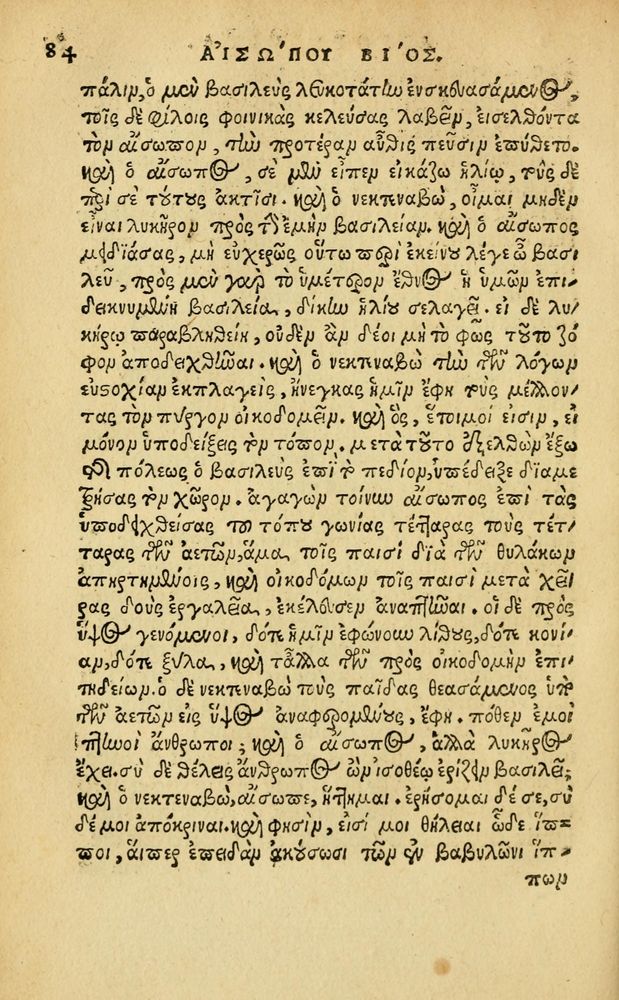 84 ΑΙΣΩΠΟΥ ΒΙΌΣ.
πάλιν, ὁ μὲν βασιλεὺς λευκοτάτην ἐνσκευασάμενος,
τοῖς δὲ φίλοις φοινικὰς κελεύσας λαβεῖν, εἰσελθόντα
τὸν αἴσωπον, τὴν προτέραν αὖθις πεῦσιν ἐπύθετο.
καὶ ὁ αἴσωπος, σὲ μὲν εἶπεν εἰκάζω ἡλίῳ, τοὺς δὲ
περί σε τούτους ἀκτίσι. καὶ ὁ νεκτεναβὼ, οἶμαι μηδὲν
εἶναι λυκῆρον πρὸς τὴν ἐμὴν βασιλείαν. καὶ ὁ αἴσωπος
μειδιάσας, μὴ εὐχερῶς οὕτω περὶ ἐκείνου λέγε ὦ βασι
λεῦ, πρὸς μὲν γὰρ τὸ ὑμέτερον ἔθνος ἡ ὑμῶν ἐπι/
δεικνυμένη βασιλεία, δίκην ἡλίου σελαγεῖ. εἰ δὲ λυ/
κήρῳ παραβληθείη, οὐδὲν ἂν δέοι μὴ τὸ φῶς τοῦτο ζό/
φον ἀποδειχθῆναι. καὶ ὁ νεκτεναβὼ τὴν τῶν λόγων
εὐστοχίαν ἐκπλαγεὶς, ἤνεγκας ἡμῖν ἔφη τοὺς μέλλον/
τας τὸν πύργον οἰκοδομεῖν. καὶ ὃς, ἕτοιμοί εἰσιν, εἰ
μόνον ὑποδείξεις τὸν τόπον. μετὰ τοῦτο ἐξελθὼν ἔξω
τῆς πόλεως ὁ βασιλεὺς ἐπὶ τὸ πεδίον, ὑπέδειξε διαμε
τρήσας τὸν χῶρον. ἀγαγὼν τοίνυν αἴσωπος ἐπὶ τὰς
ὑποδειχθείσας τοῦ τόπου γωνίας τέτταρας τοὺς τέτ/
ταρας τῶν ἀετῶν, ἅμα τοῖς παισὶ διὰ τῶν θυλάκων
ἀπηρτημένοις, καὶ οἰκοδόμων τοῖς παισὶ μετὰ χεῖ
ρας δοὺς ἐργαλεῖα, ἐκέλευσεν ἀναπτῆναι. οἱ δὲ πρὸς
ὕψος γενόμενοι, δότε ἡμῖν ἐφώνουν λίθους, δότε κονί/
αν, δότε ξύλα, καὶ τἆλλα τῶν πρὸς οἰκοδομὴν ἐπι/
τηδείων. ὁ δὲ νεκτεναβὼ τοὺς παῖδας θεασάμενος ὑπὸ
τῶν ἀετῶν εἰς ὕψος ἀναφερομένους, ἔφη. πόθεν ἐμοὶ
πτηνοὶ ἄνθρωποι; καὶ ὁ αἴσωπος, ἀλλὰ λυκῆρος
ἔχει. σὺ δὲ θέλεις ἄνθρωπος ὢν ἰσοθέῳ ἐρίζειν βασιλεῖ;
καὶ ὁ νεκτεναβὼ, αἴσωπε, ἥττημαι. ἐρήσομαι δέ σε, σὺ
δέ μοι ἀπόκριναι. καὶ φησὶν, εἰσί μοι θήλειαι ὧδε ἵπ-
ποι, αἵπερ ἐπειδὰν ἀκούσωσι τῶν ἐν βαβυλῶνι ἵπ-
πων